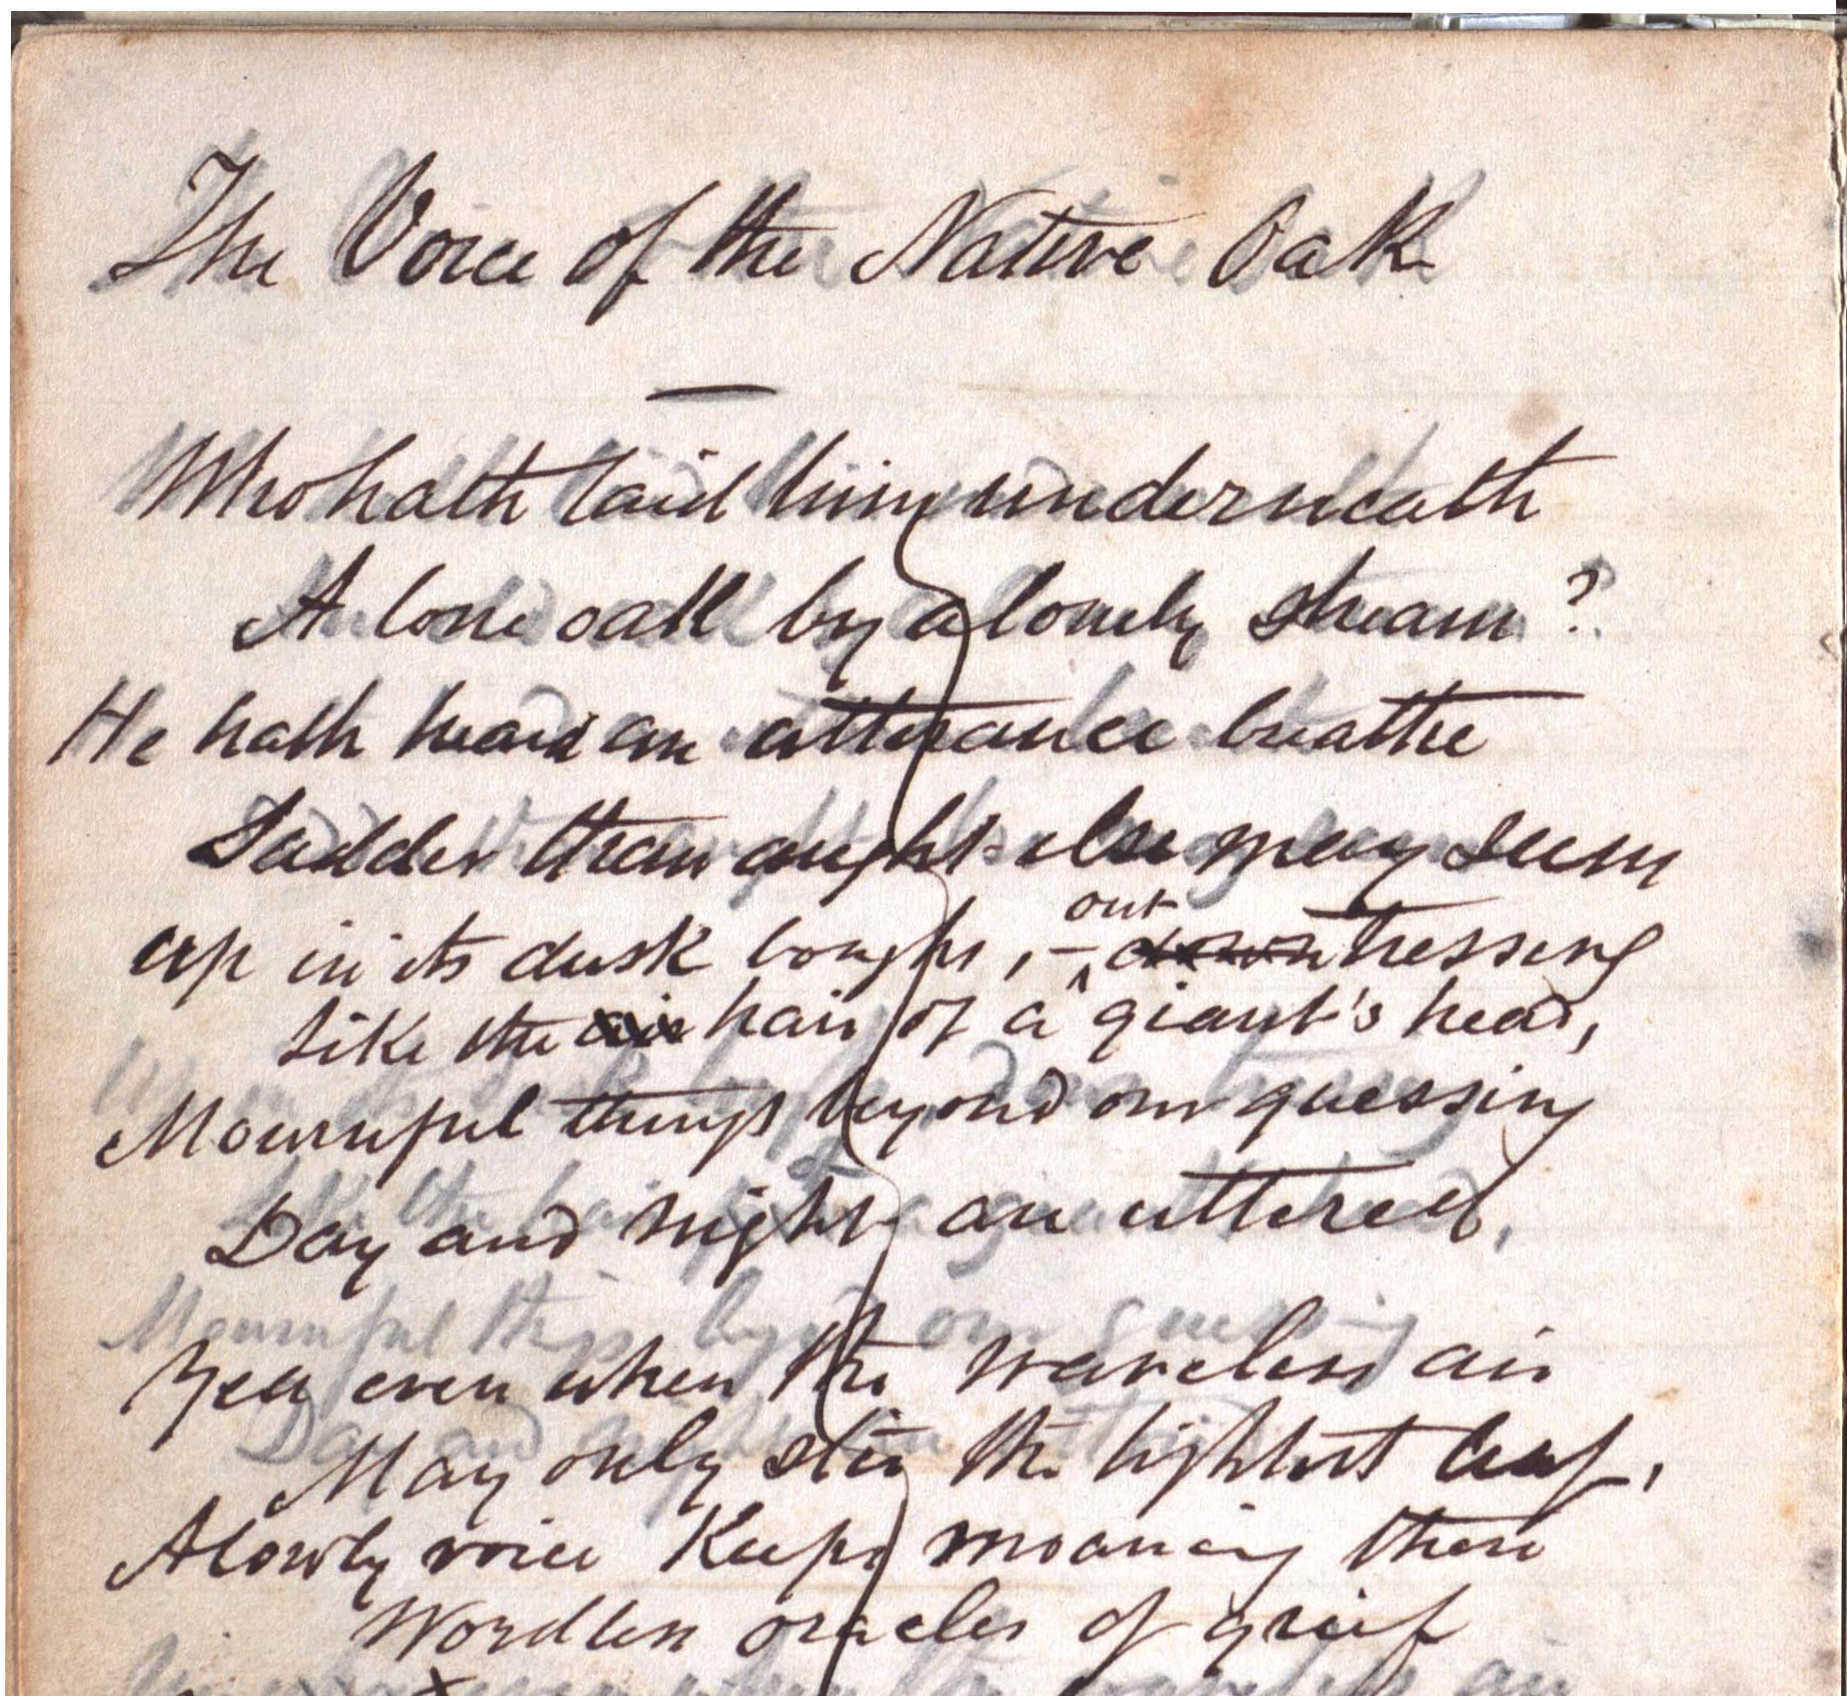 The Voice of the Native Oak
Who hath laid him underneath
A lone oak by a lonely stream?
He hath heard an utterance breathe
Sadder than aught else may seem
Up in its dusk boughs, – out down tressing
Like the air hair of a giant's head,
Mournful things beyond our guessing
Day and night are uttered,
Yea even when the waveless air
May only stir the lightest leaf,
A lowly voice keeps moaning there
Wordless oracles of grief